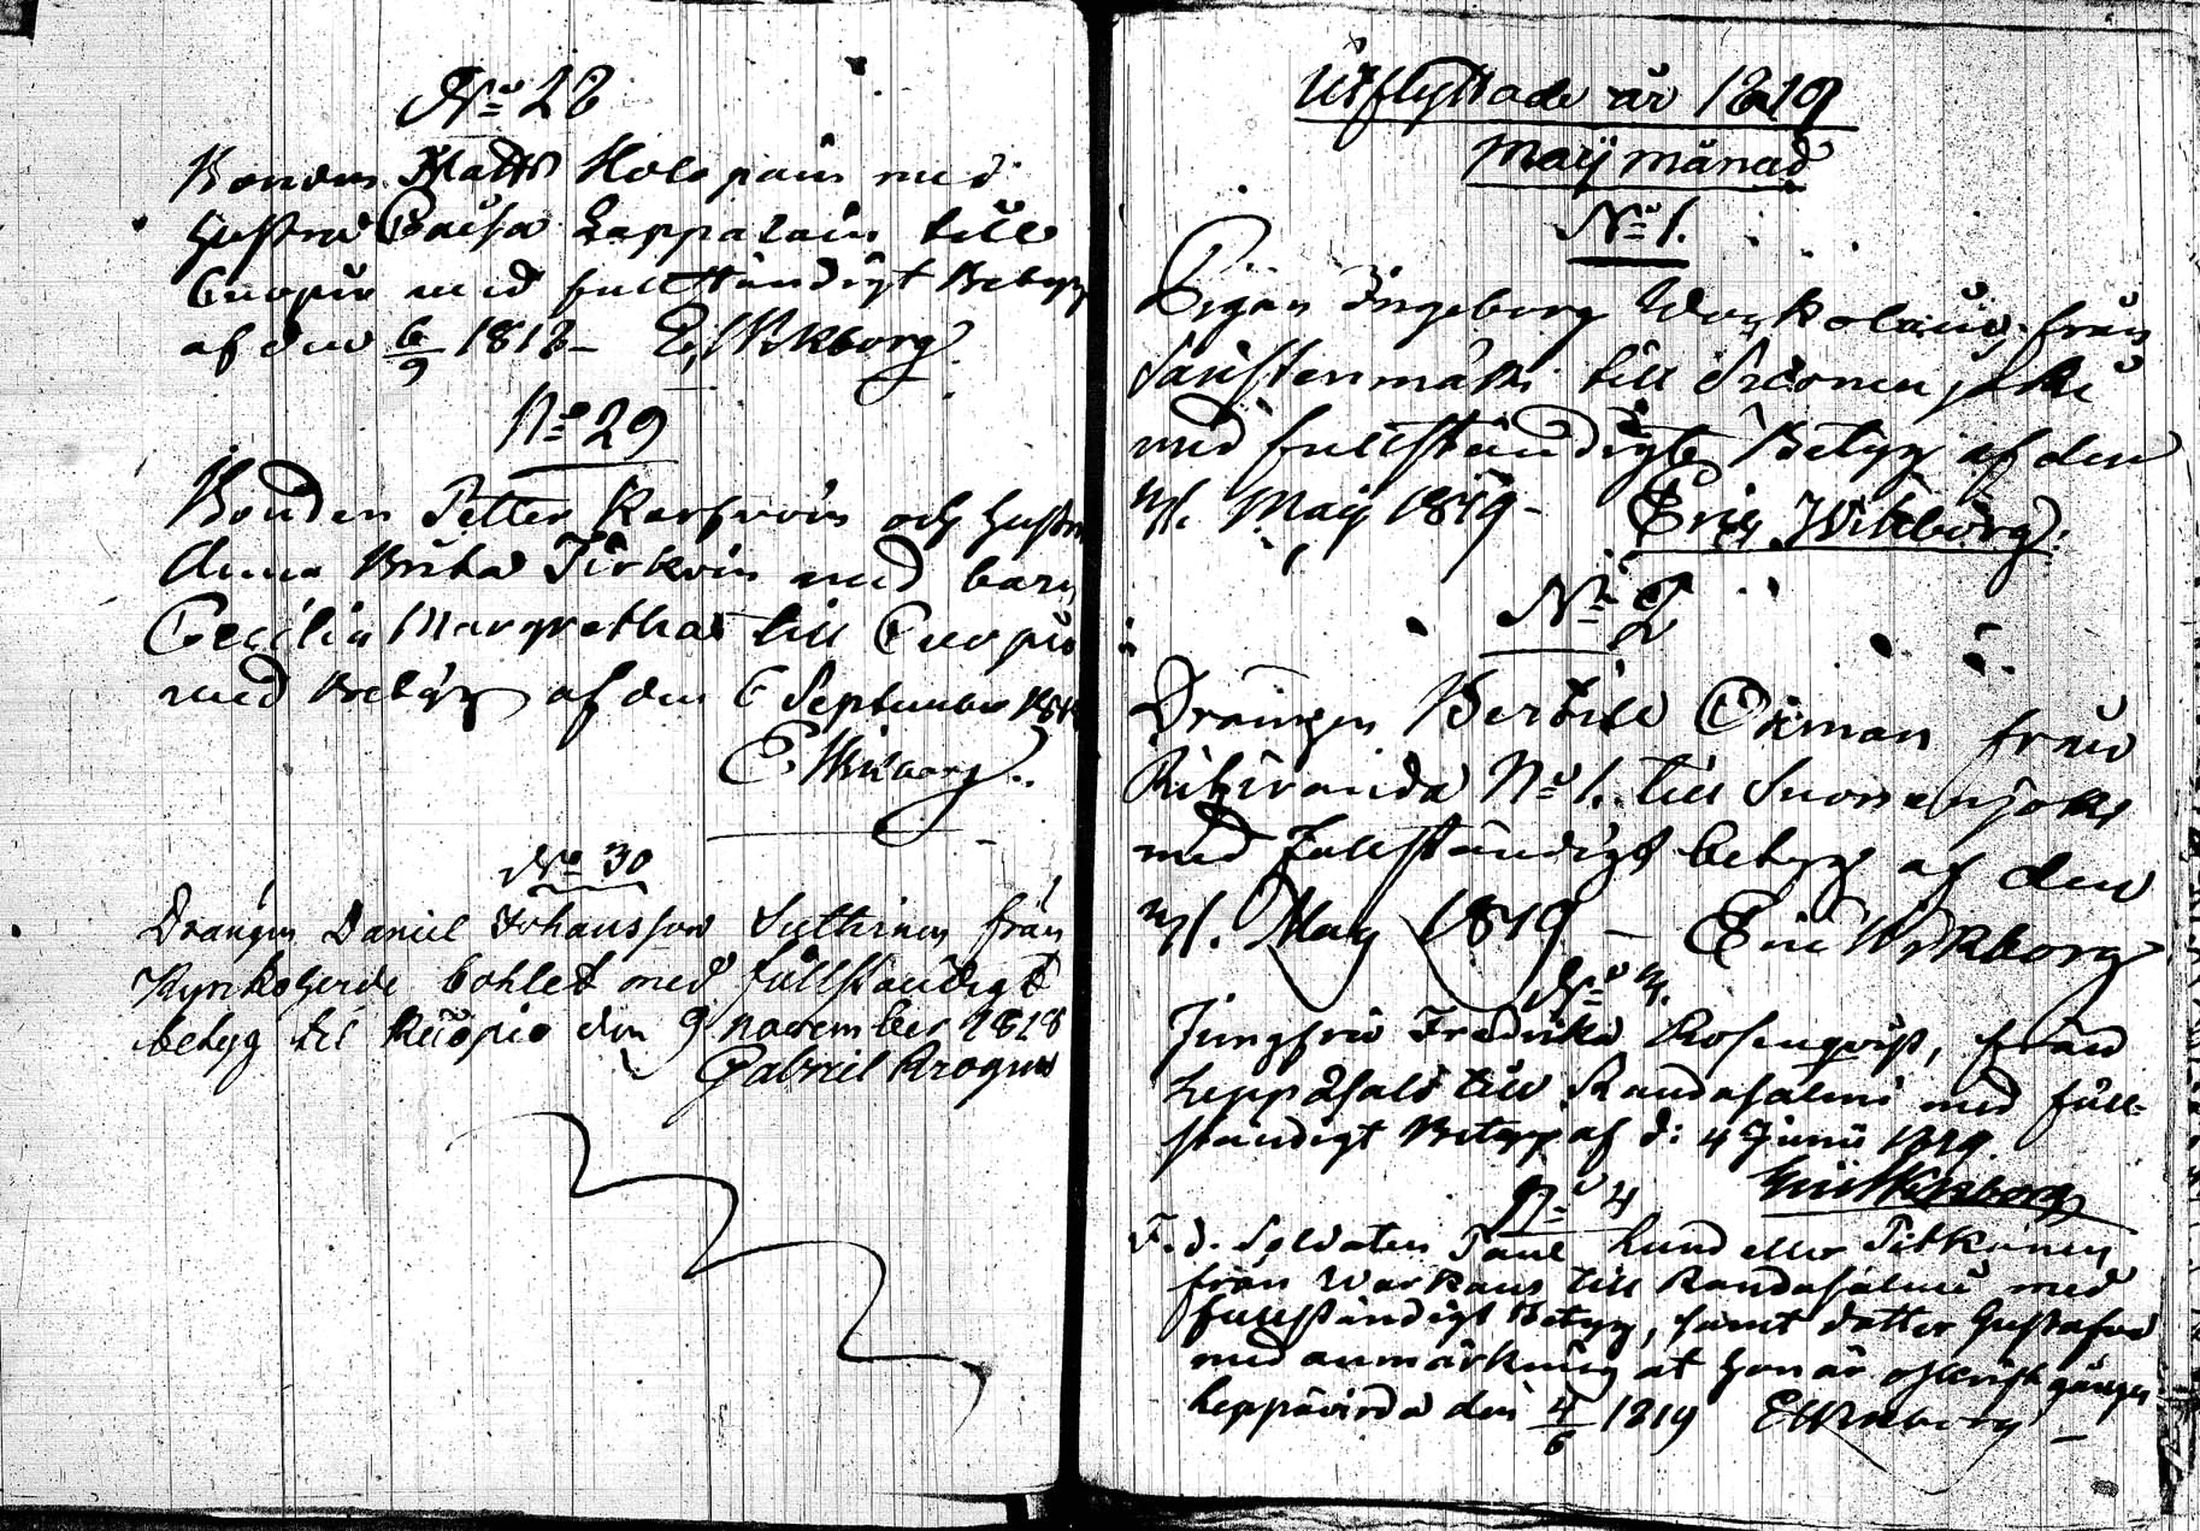 No 28
Bonden Matts Holopain med
hustru Caisa Lappalain till
Cuopio med fullständigt Betyg
af den 6/9 1818 - E. Wikborg
No 29
Bonden Petter Karhuin och hustru
Anna Brita Tirkoin med barn
Cecilia Margretha till Cuopio
med Betyg af den 6 September 1818
E. Wikborg.
No 30
Drängen Daniel Johansson Suthinen från
bohlet med fullständigt
betyg til Kuopio den 9 november 1818
Gabriel Krogius
Utflyttade år 1819
Maij månad
No 1.
Pigan Ingeborg från
till Suonenjoki
med fullständigt Betyg af den
Maij 1819 - Eric Wikborg.
No 2
Drängen Bertill Öhman från
No 1. till Suonenjoki
med fullständigt betyg af den
Maij 1819 - Eric Wikborg
No 3.
Jungfru Fredrika Rosenqvist, från
till Randasalmi med full-
ständigt Betyg af d: 4 Junii 1819.
Eric Wikborg
No 4
F. d. Soldaten Paul Lund eller Pitkänen
från Warkaus till Randasalmi med
fullständigt Betyg, samt dotter Gustafva
med anmärkning at hon är
Leppävirda den 4/6 1819 E Wikborg